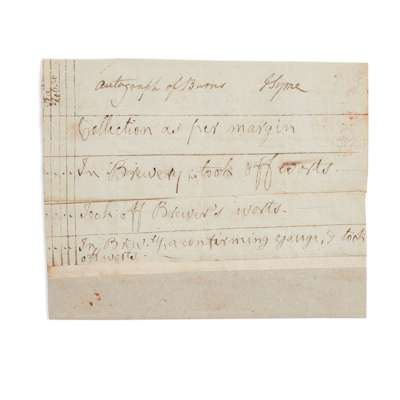 Autograph of Burns JSyme
Collection as per margin
In Brewery & took off worts.
Took off Brewer's worts.
In Brewery, a confirming gauge, & took
off worts.